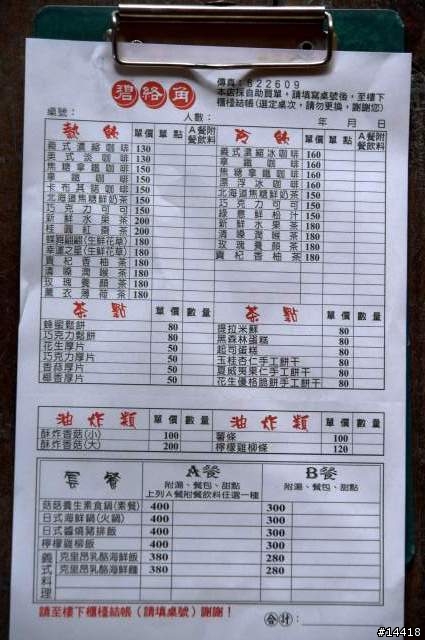 碧絡角
傳真:822609
本店採自助買單，請填寫桌號後，至樓下
櫃檯結帳(選定桌次，請勿更換，謝謝您)
桌號： 人數： 年 月 日
熱飲 單價 單點 A餐附餐飲料
義式濃縮咖啡 130
美式淡咖啡 130
焦糖拿鐵咖啡 150
拿鐵咖啡 150
卡布其諾咖啡 150
北海道焦糖鮮奶茶 150
巧克力可可 150
新鮮水果茶 200
桂圓紅棗茶 200
蝶舞翩翩(生鮮花草) 180
幸運之星(生鮮花草) 180
貴杞香柚茶 180
清嗓潤喉茶 180
玫瑰養顏茶 180
薰衣薄荷茶 180
冷飲 單價 單點 A餐附餐飲料
義式濃縮冰咖啡 160
拿鐵咖啡 160
焦糖拿鐵咖啡 160
漂浮冰咖啡 160
北海道焦糖鮮奶茶 150
巧克力可可 150
綠意鮮松汁 150
新鮮水果茶 180
清嗓潤喉茶 180
玫瑰養顏茶 180
貴杞香柚茶 180
茶點 單價 數量
蜂蜜鬆餅 80
巧克力鬆餅 80
花生厚片 50
巧克力厚片 50
香蒜厚片 50
椰香厚片 50
茶點 單價 數量
提拉米蘇 80
黑森林蛋糕 80
起司蛋糕 80
玉桂杏仁手工餅干 80
夏威夷果仁手工餅干 80
花生優格脆餅手工餅干 80
油炸類 單價 數量 油炸類 單價 數量
酥炸香菇(小) 100 薯條 100
酥炸香菇(大) 200 檸檬雞柳條 120
套餐 A餐 B餐
附湯、餐包、甜點 附湯、餐包、甜點
上列A餐附餐飲料任選一種
菇菇養生素食鍋(素餐) 400 300
日式海鮮鍋(火鍋) 400 300
日式醬燒豬排飯 400 300
檸檬雞柳飯 400 300
義式料理 克里昂乳酪海鮮飯 380 280
克里昂乳酪海鮮麵 380 280
請至樓下櫃檯結帳(請填桌號)謝謝！
合計：
#14418